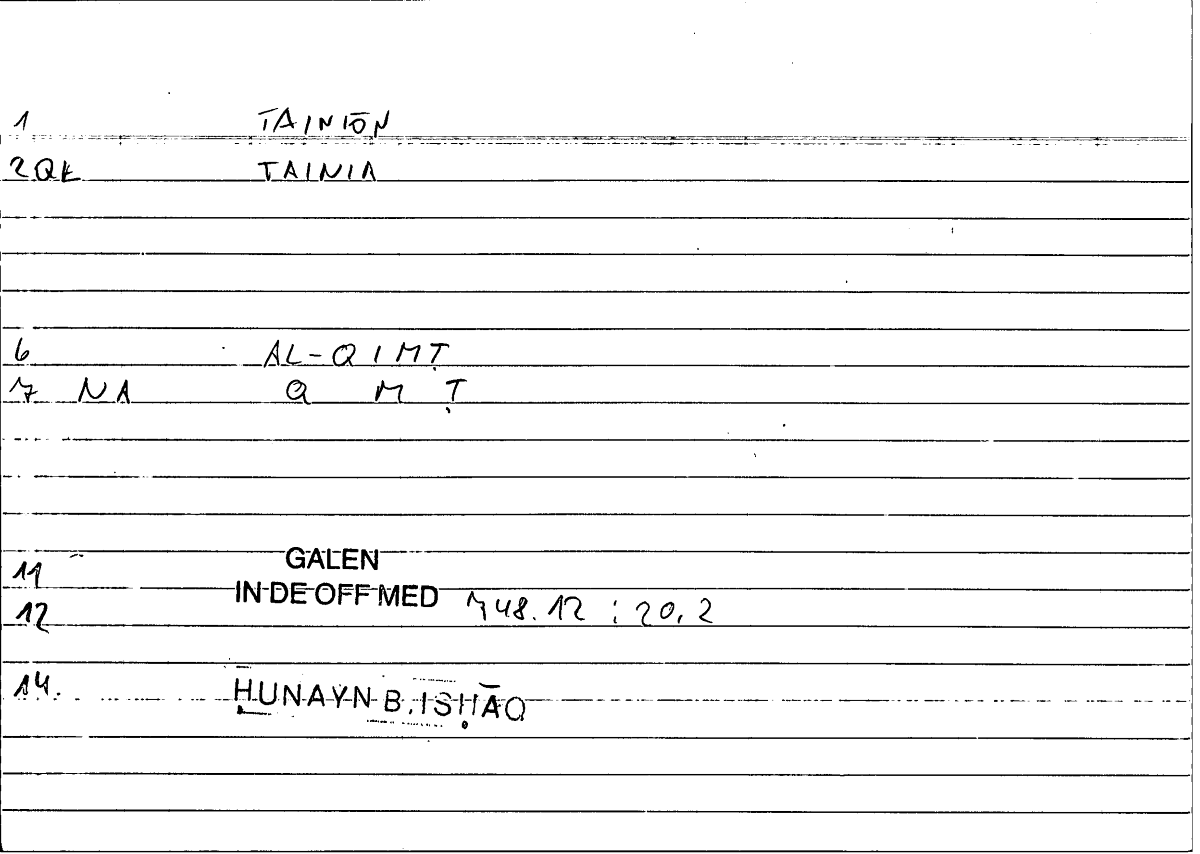 1 TAINIŌN
2QK TAINIA
6 AL-QIMṬ
7 NA Q M Ṭ
11 GALEN
12 IN DE OFF MED 748.12 ; 20,2
14. ḤUNAYN B. ISḤĀQ